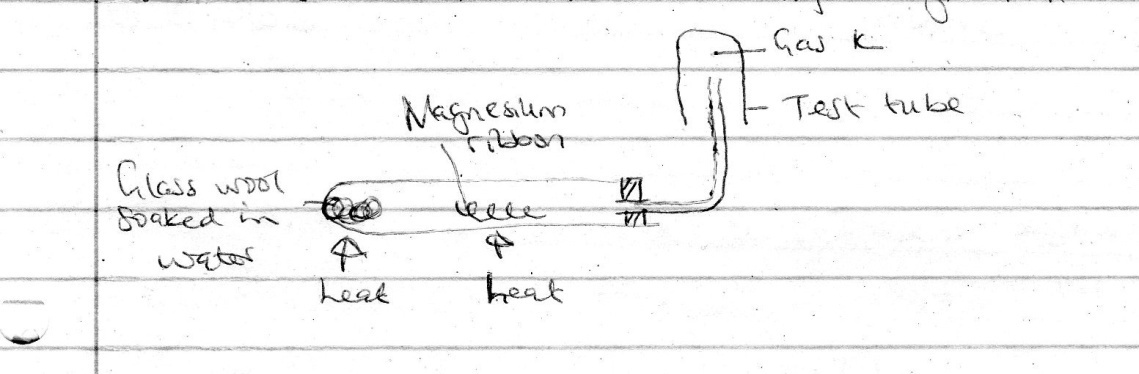 Gas K
Test tube
Magnesium
ribbon
Glass wool
soaked in
water
heat
heat